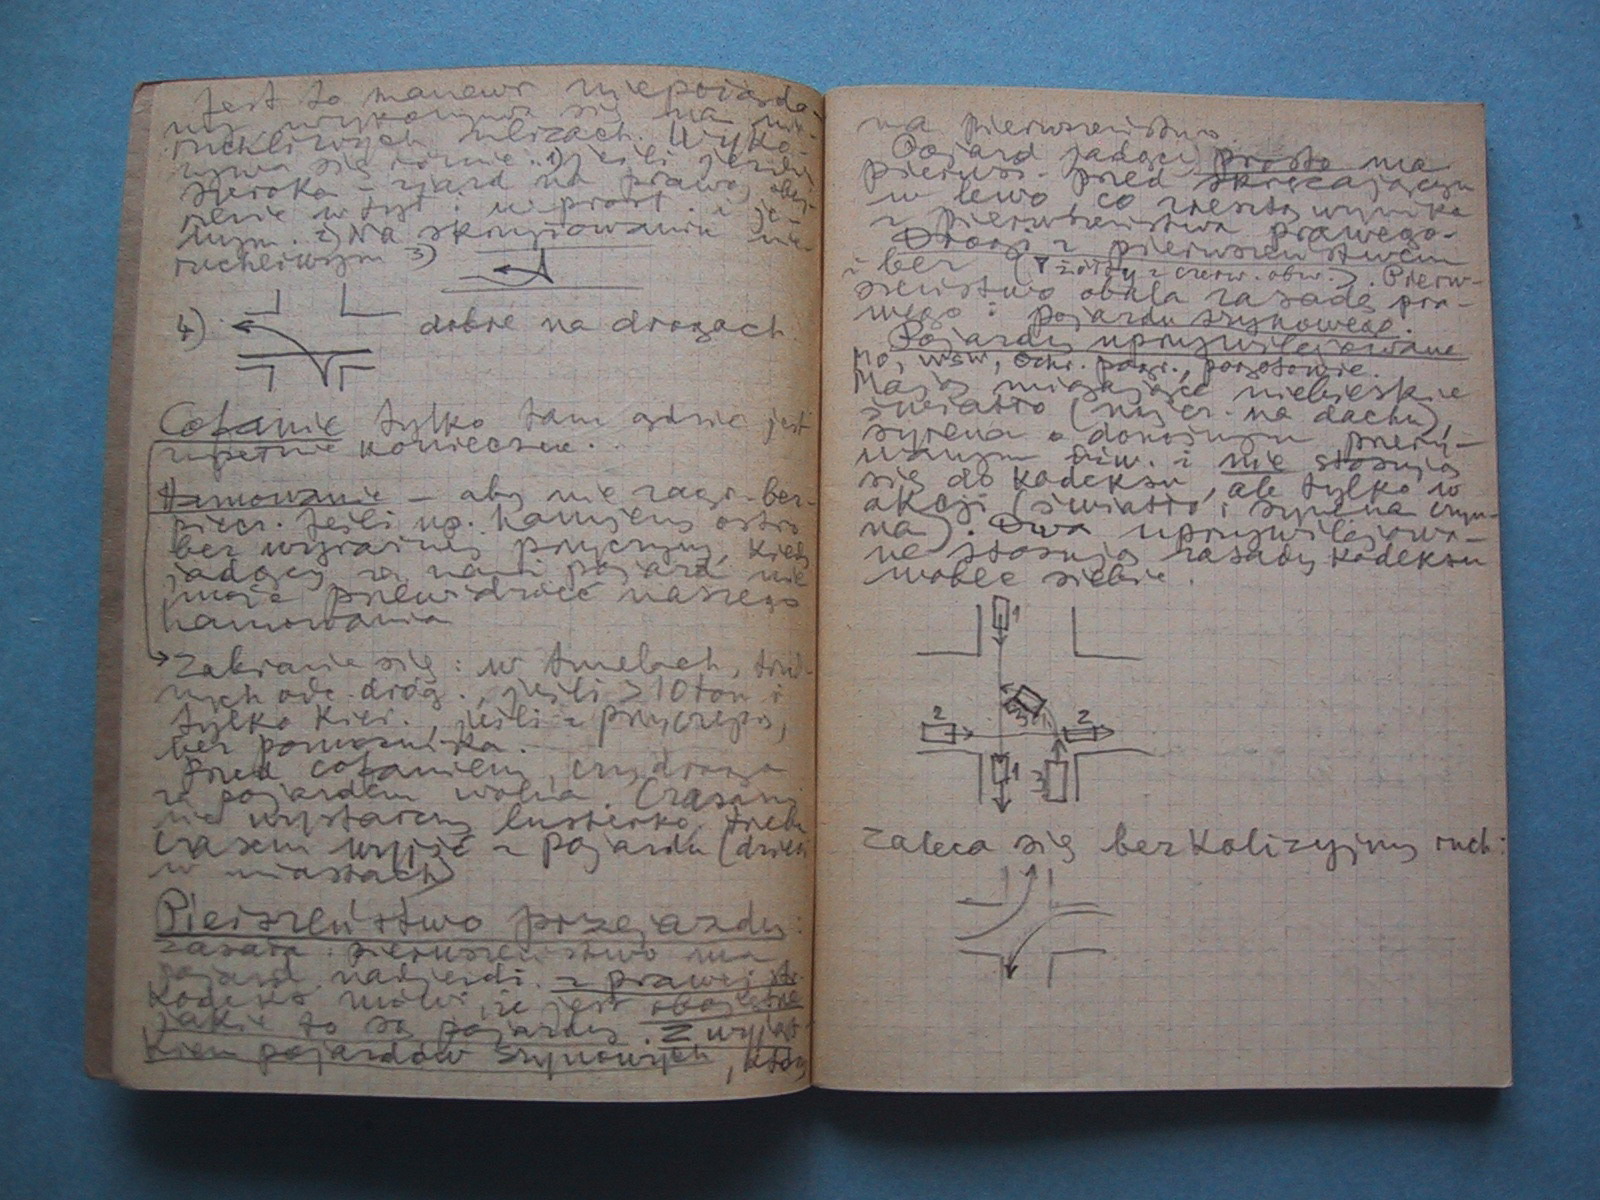 Jest to manewr niepożąda-
ny wykonywa się na nie-
ruchliwych ulicach. Wyko-
nywa się różnie. 1) jeśli jezdnia
szeroka - zjazd na prawo,
renie w tył i w prost. i je-
nym. 2) Na skrzyżowaniu nie
ruchliwym 3)
4) dobre na drogach
Cofanie tylko tam gdzie jest
zupełnie konieczne.
Hamowanie - aby nie zagr. bez-
piecz. Jeśli np. hamujemy ostro
bez wyraźnej przyczyny, kiedy
jadący za nami pojazd nie
może przewidzieć naszego
hamowania
Zabrania się: w tunelach,
nych odc. dróg., jeśli >10 ton i
tylko kier., jeśli z przyczepą,
bez pomocnika.
Przed cofaniem, czy droga
za pojazdem wolna. Czasami
nie wystarczy lusterko. Trzeba
czasem wyjść z pojazdu (dzieci
w miastach)
Pierszeństwo przejazdu:
zasada: pierwszeństwo ma
pojazd nadjeżdż. z prawej str.
Kodeks mówi, że jest obojętne
jakie to są pojazdy. Z wyjąt-
kiem pojazdów szynowych, które
na pierwszeństwo.
Pojazd jadący prosto ma
pierwsz. przed skręcającym
w lewo, co zresztą wynika
z pierwszeństwa prawego.
Drogi z pierwszeństwem
i bez (▽ żółty z czerw. obw.). Pierw-
szeństwo obala zasadę pra-
wego i pojazdu szynowego.
Pojazdy uprzywilejowane
MO, WSW, Ochr. poż., pogotowie.
Mają migające niebieskie
światło (najcz. na dachu),
syrena o donośnym przery-
wanym dźw. i nie stosują
się do kodeksu, ale tylko w
akcji (światło i syrena czyn-
na). Dwa uprzywilejowa-
ne stosują zasady kodeksu
wobec siebie.
1
2 3 2
1 3
Zaleca się bezkolizyjny ruch: